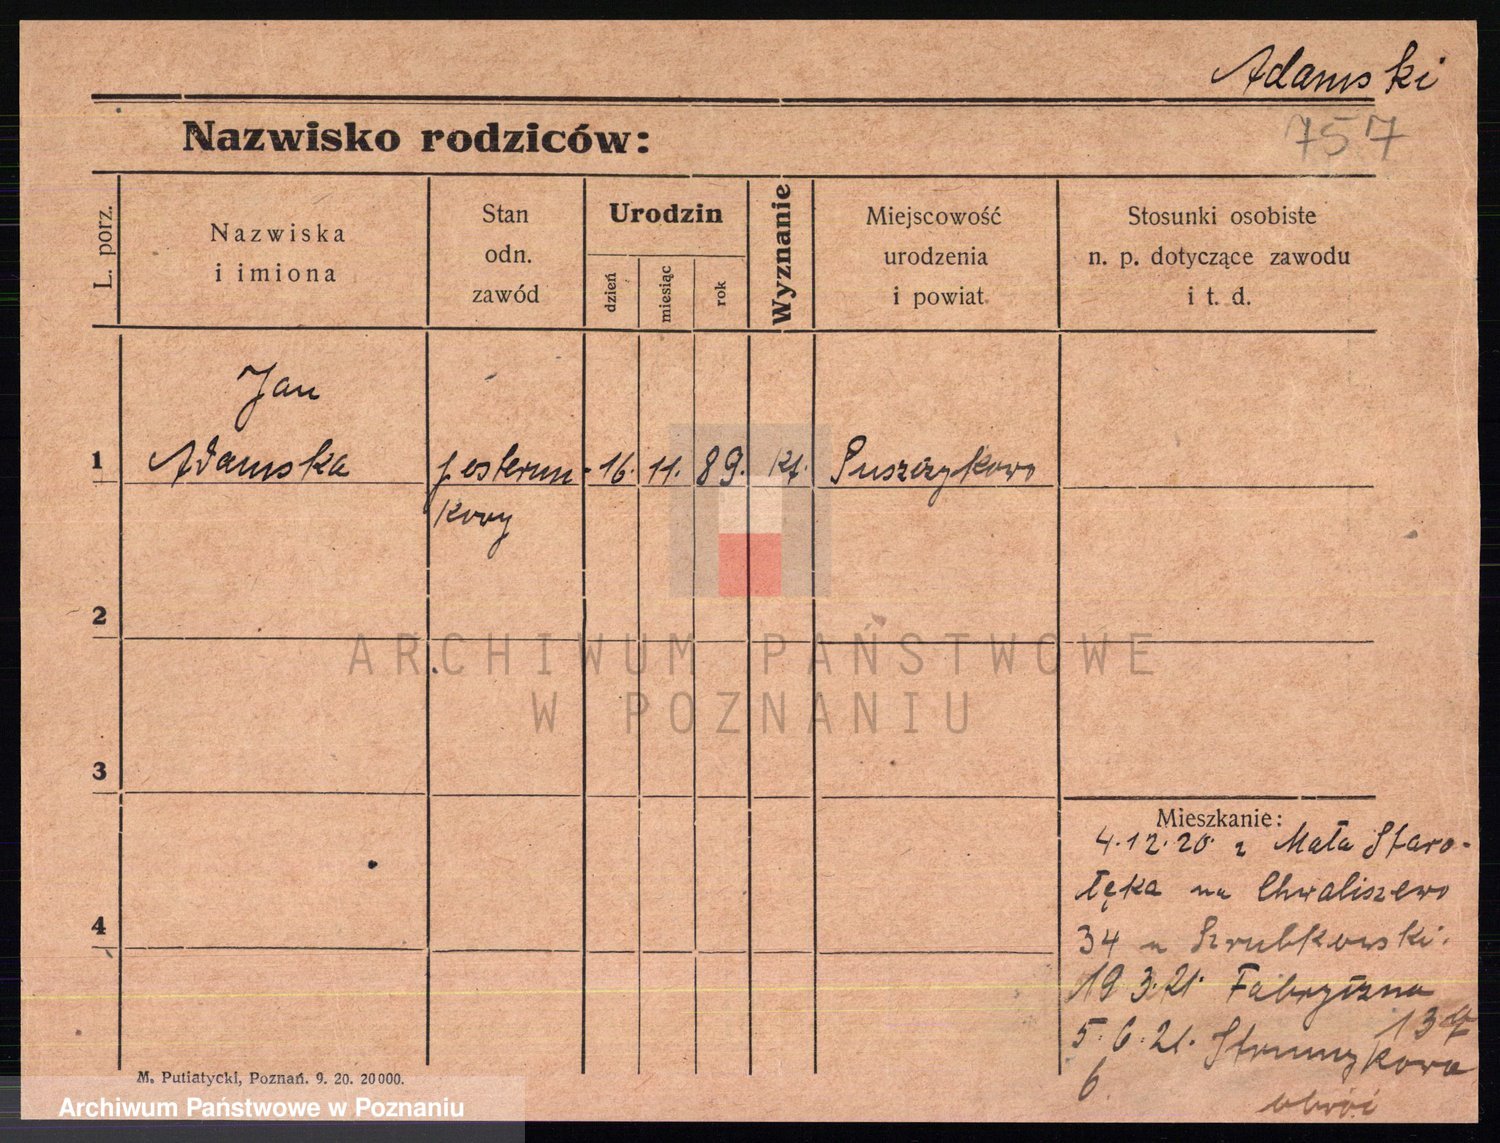 Adamski
757
Nazwisko rodziców:
L. porz.
Nazwiska
i imiona
Stan
odn.
zawód
Urodzin
dzień
miesiąc
rok
Wyznanie
Miejscowość
urodzenia
i powiat
Stosunki osobiste
n. p. dotyczące zawodu
i t. d.
Jan
1 Adamska posterun 16. 11. 89. kt. Puszczykowo
kowy
2
ARCHIWUM PAŃSTWOWE
W POZNANIU
3
4
Mieszkanie:
4.12.20. z Mała Staro-
łęka na Chwaliszewo
34 u
19 3.21. Fabryczna
13
5.6.21. Strumykowa
6
obróć
M. Putiatycki, Poznań. 9. 20. 20000.
Archiwum Państwowe w Poznaniu